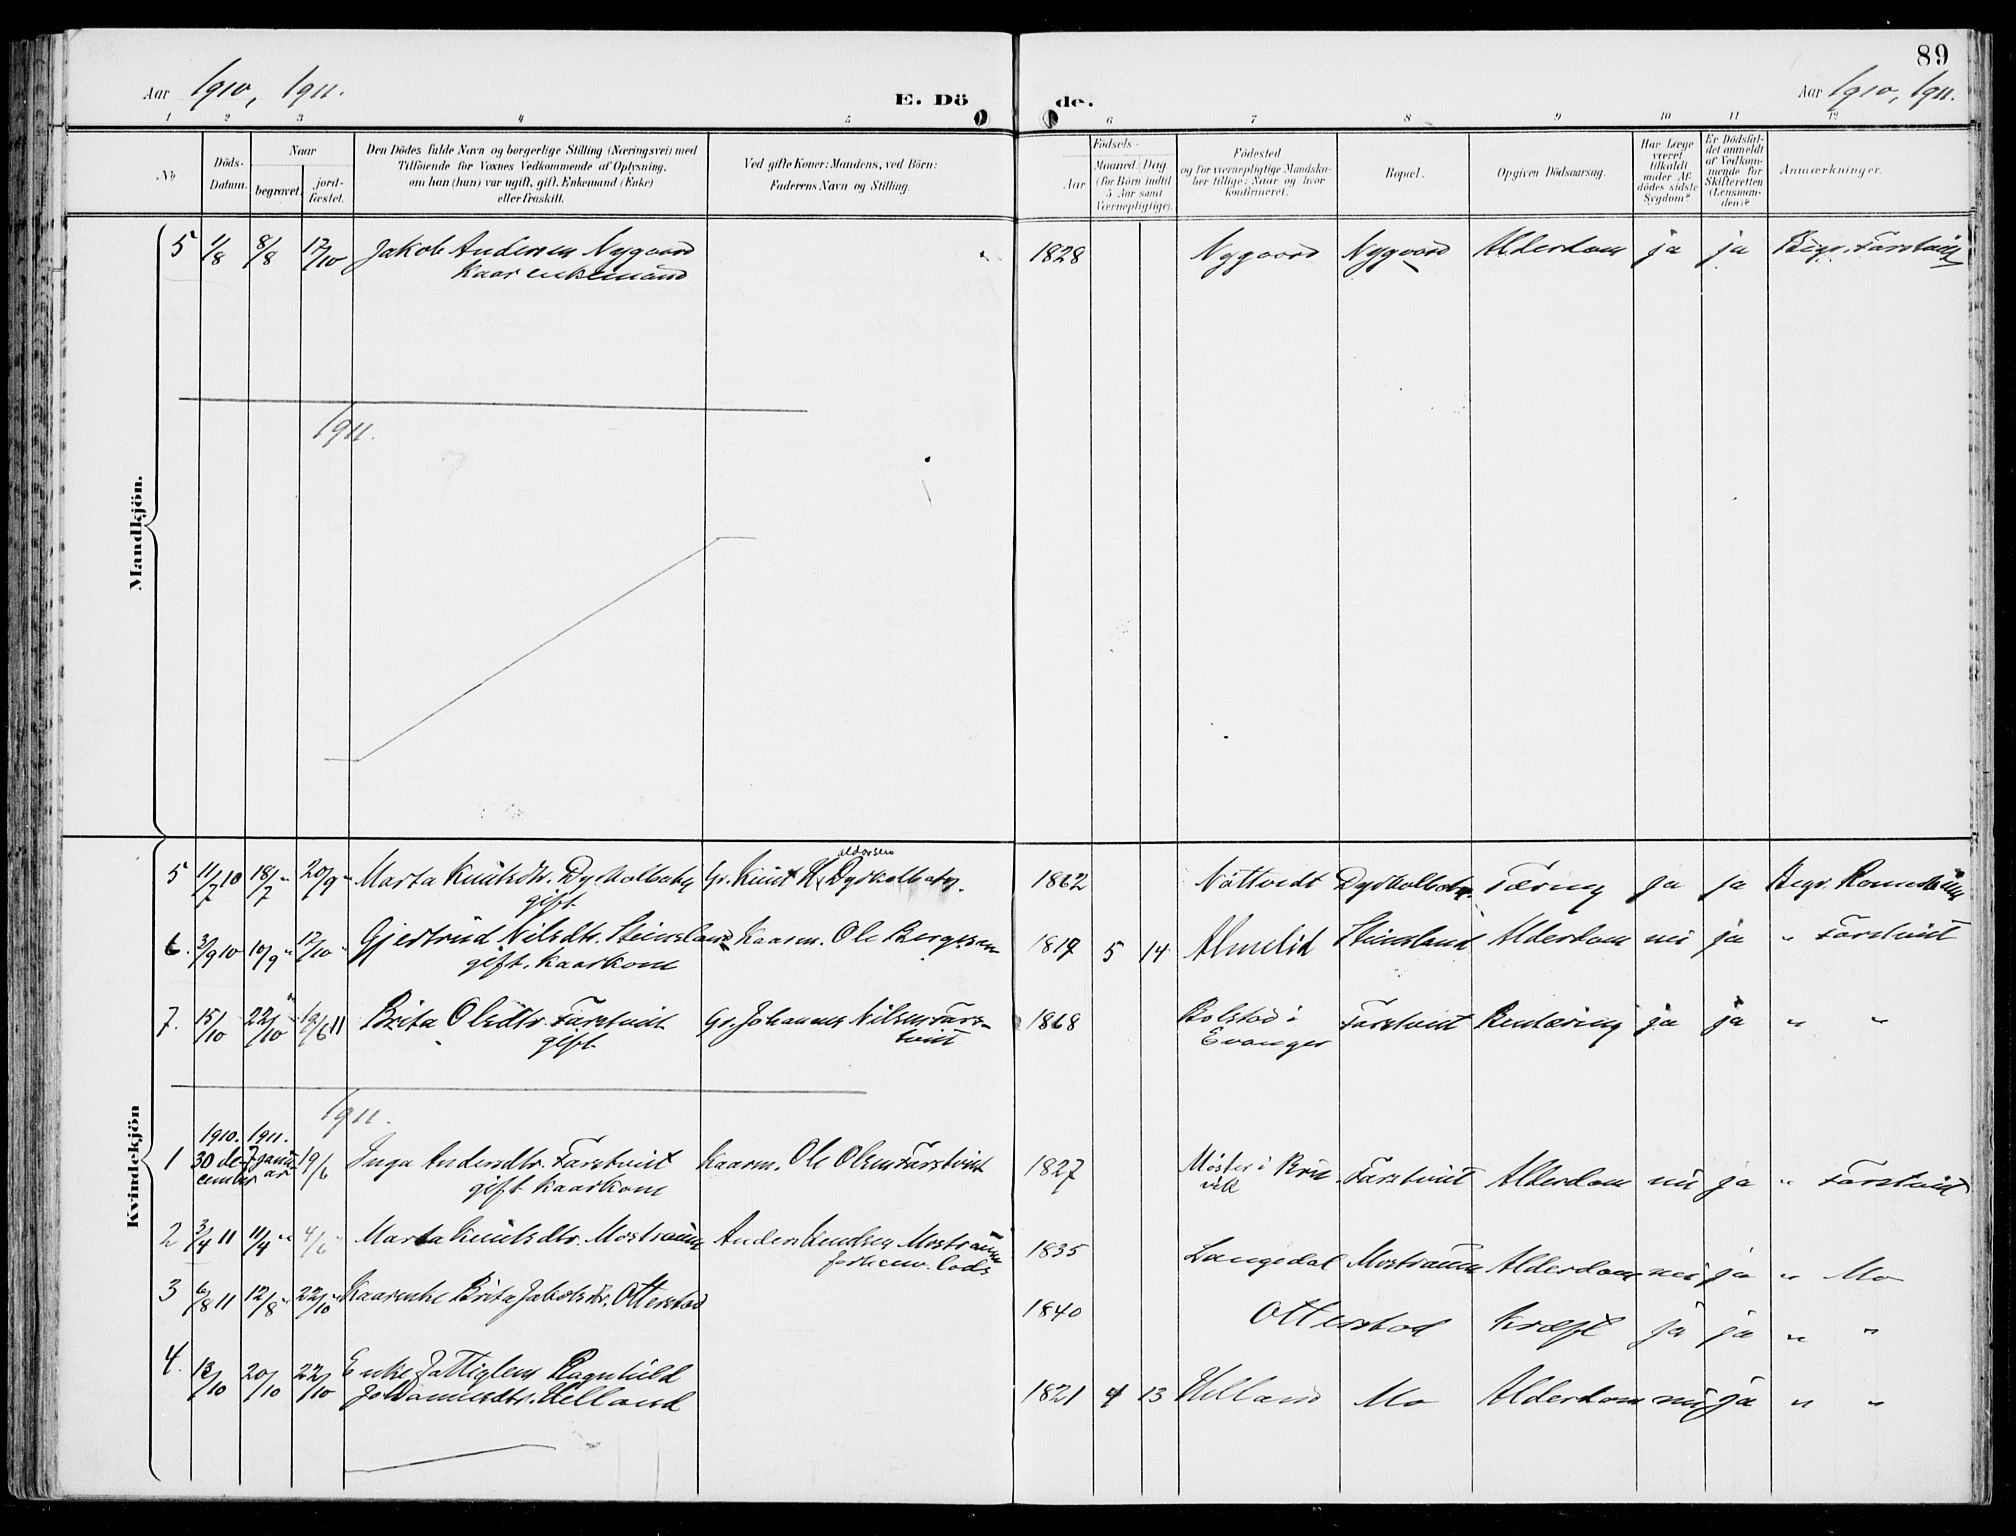 89
Aar 1910, 1911.
E. Döde.
Aar 1910, 1911.
1 2 3 4 5 6 7 8 9 10 11 12
No
Döds-Datum.
Naar
begravet.
jord-fæstet.
Den Dödes fulde Navn og borgerlige Stilling (Næringsvei) med
Tilföiende for Voxnes Vedkommende af Oplysning,
om han (hun) var ugift, gift, Enkemand (Enke)
eller fraskilt.
Ved gifte Koner: Mandens, ved Börn:
Faderens Navn og Stilling.
Födsels-
Aar
Maaned Dag
(for Börn indtil
5 Aar samt
Værnepligtige).
Födested
og for værnepligtige Mandska-
ber tillige: Naar og hvor
konfirmeret.
Bopæl.
Opgiven Dödsaarsag.
Har Læge
været
tilkaldt
under Af-
dödes sidste
Sygdom?
Er Dödsfal-
det anmeldt
af Vedkom-
mende for
Skifteretten
(Lensman-
den)?
Anmærkninger.
Mandkjön.
5 1/8 8/8 17/10 Jakob Andersen Nygaard 1828 Nygaard Nygaard Alderdom ja ja Begr. Farstveit
Kaarenkemand
1911.
Kvindekjön
5 11/7 10 18/7 " 20/9 " Marta Knutsdtr. Dyrkolbotn Gr. Knut H aldorsen Dyrkolbotn. 1862 Nottveit Dyrkolbotn. Tæring ja ja Begr. Romestrann
gift
6. 3/9 10 10/9 " 17/10 " Gjertrud Nilsdtr. Steinsland Kaarm. Ole Bergesen 1819 5 14 Almelid Steinsland Alderdom nei ja " Farstveit
gift. Kaarkone
7. 15/10 22/10 " 19/6 11 Brita Olsdtr. Farstveit Gr. Johannes Nilsen Fars- 1868 Bolstad i Farstveit Bentæring ja ja " "
gift tveit Evanger
1911.
1910. 1911.
1 30 de- 7 janu- 19/6 Inga Andersdtr. Farstveit Kaarm. Ole Olsen Farstveit 1827 Moster i Bru- Farstveit Alderdom nei ja " Farstveit
cember ar gift Kaarkone vik
2 3/4 11 11/4 " 4/6 " Marta Knutsdtr. Mostraum Anders Knudsen Mostraum 1835 Langedal Mostraum Alderdom nei ja " Mo
forhenv. lods
3 6/8 11 12/8 " 22/10 " Kaarenke Brita Jakobsdtr. Otterstad 1840 Otterstad Kræft ja ja " "
4. 13/10 20/10 22/10 Enke Fattiglem Ragnhild
Johannesdtr. Helland 1821 4 13 Helland Mo Alderdom nei ja " "